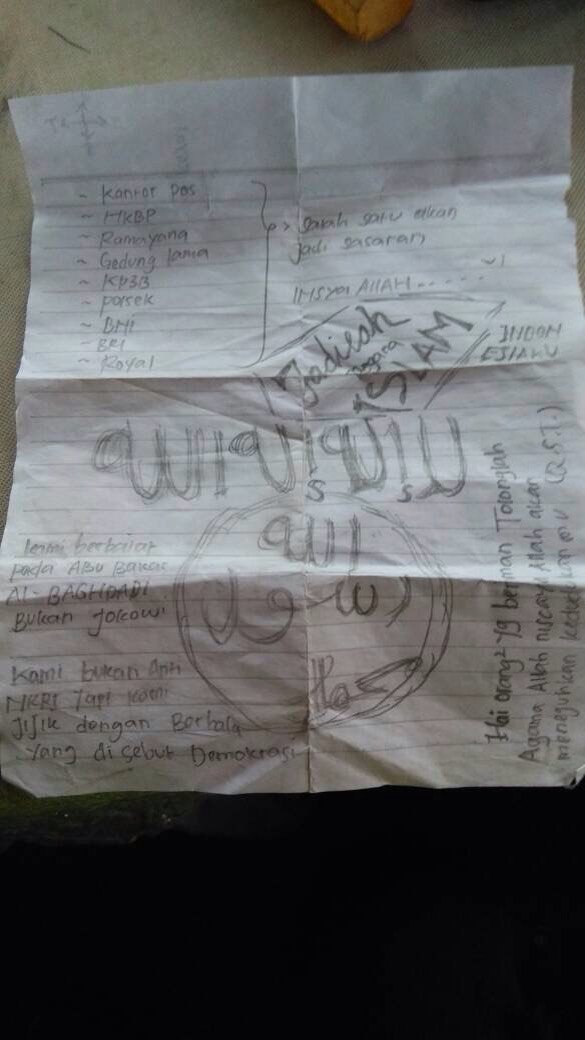 ~ Kantor Pos
~ HKBP
~ Ramayana
~ Gedung lama
~ KP3B
~ Polsek
~ BNI
~ BRI
~ Royal
Salah satu akan
jadi sasaran
INSYA ALLAH
Jadilah
Negara
ISLAM
INDON
ESIAKU
لا اله الا الله
الله
رسول
محمد
Kami berbaiat
pada ABU Bakar
Al-BAGHDADI
Bukan Jokowi
Kami bukan Anti
NKRI Tapi Kami
Jijik dengan Berhala
Yang di sebut Demokrasi
Hai orang2 yg beriman Tolonglah
Agama Allah niscaya Allah akan
meneguhkan kedudukan mu (Q.S.T.)